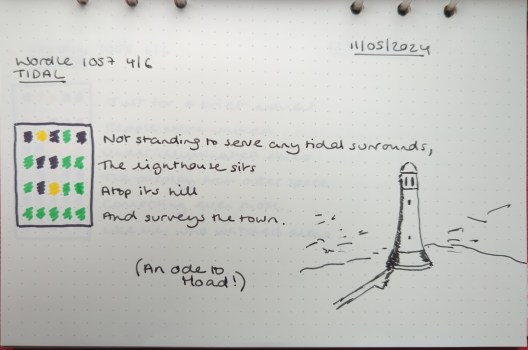 11/05/2024
Wordle 1057 4/6
TIDAL
Not standing to serve any tidal surrounds,
The lighthouse sits
Atop its hill
And surveys the town.
(An ode to
Hoad!)